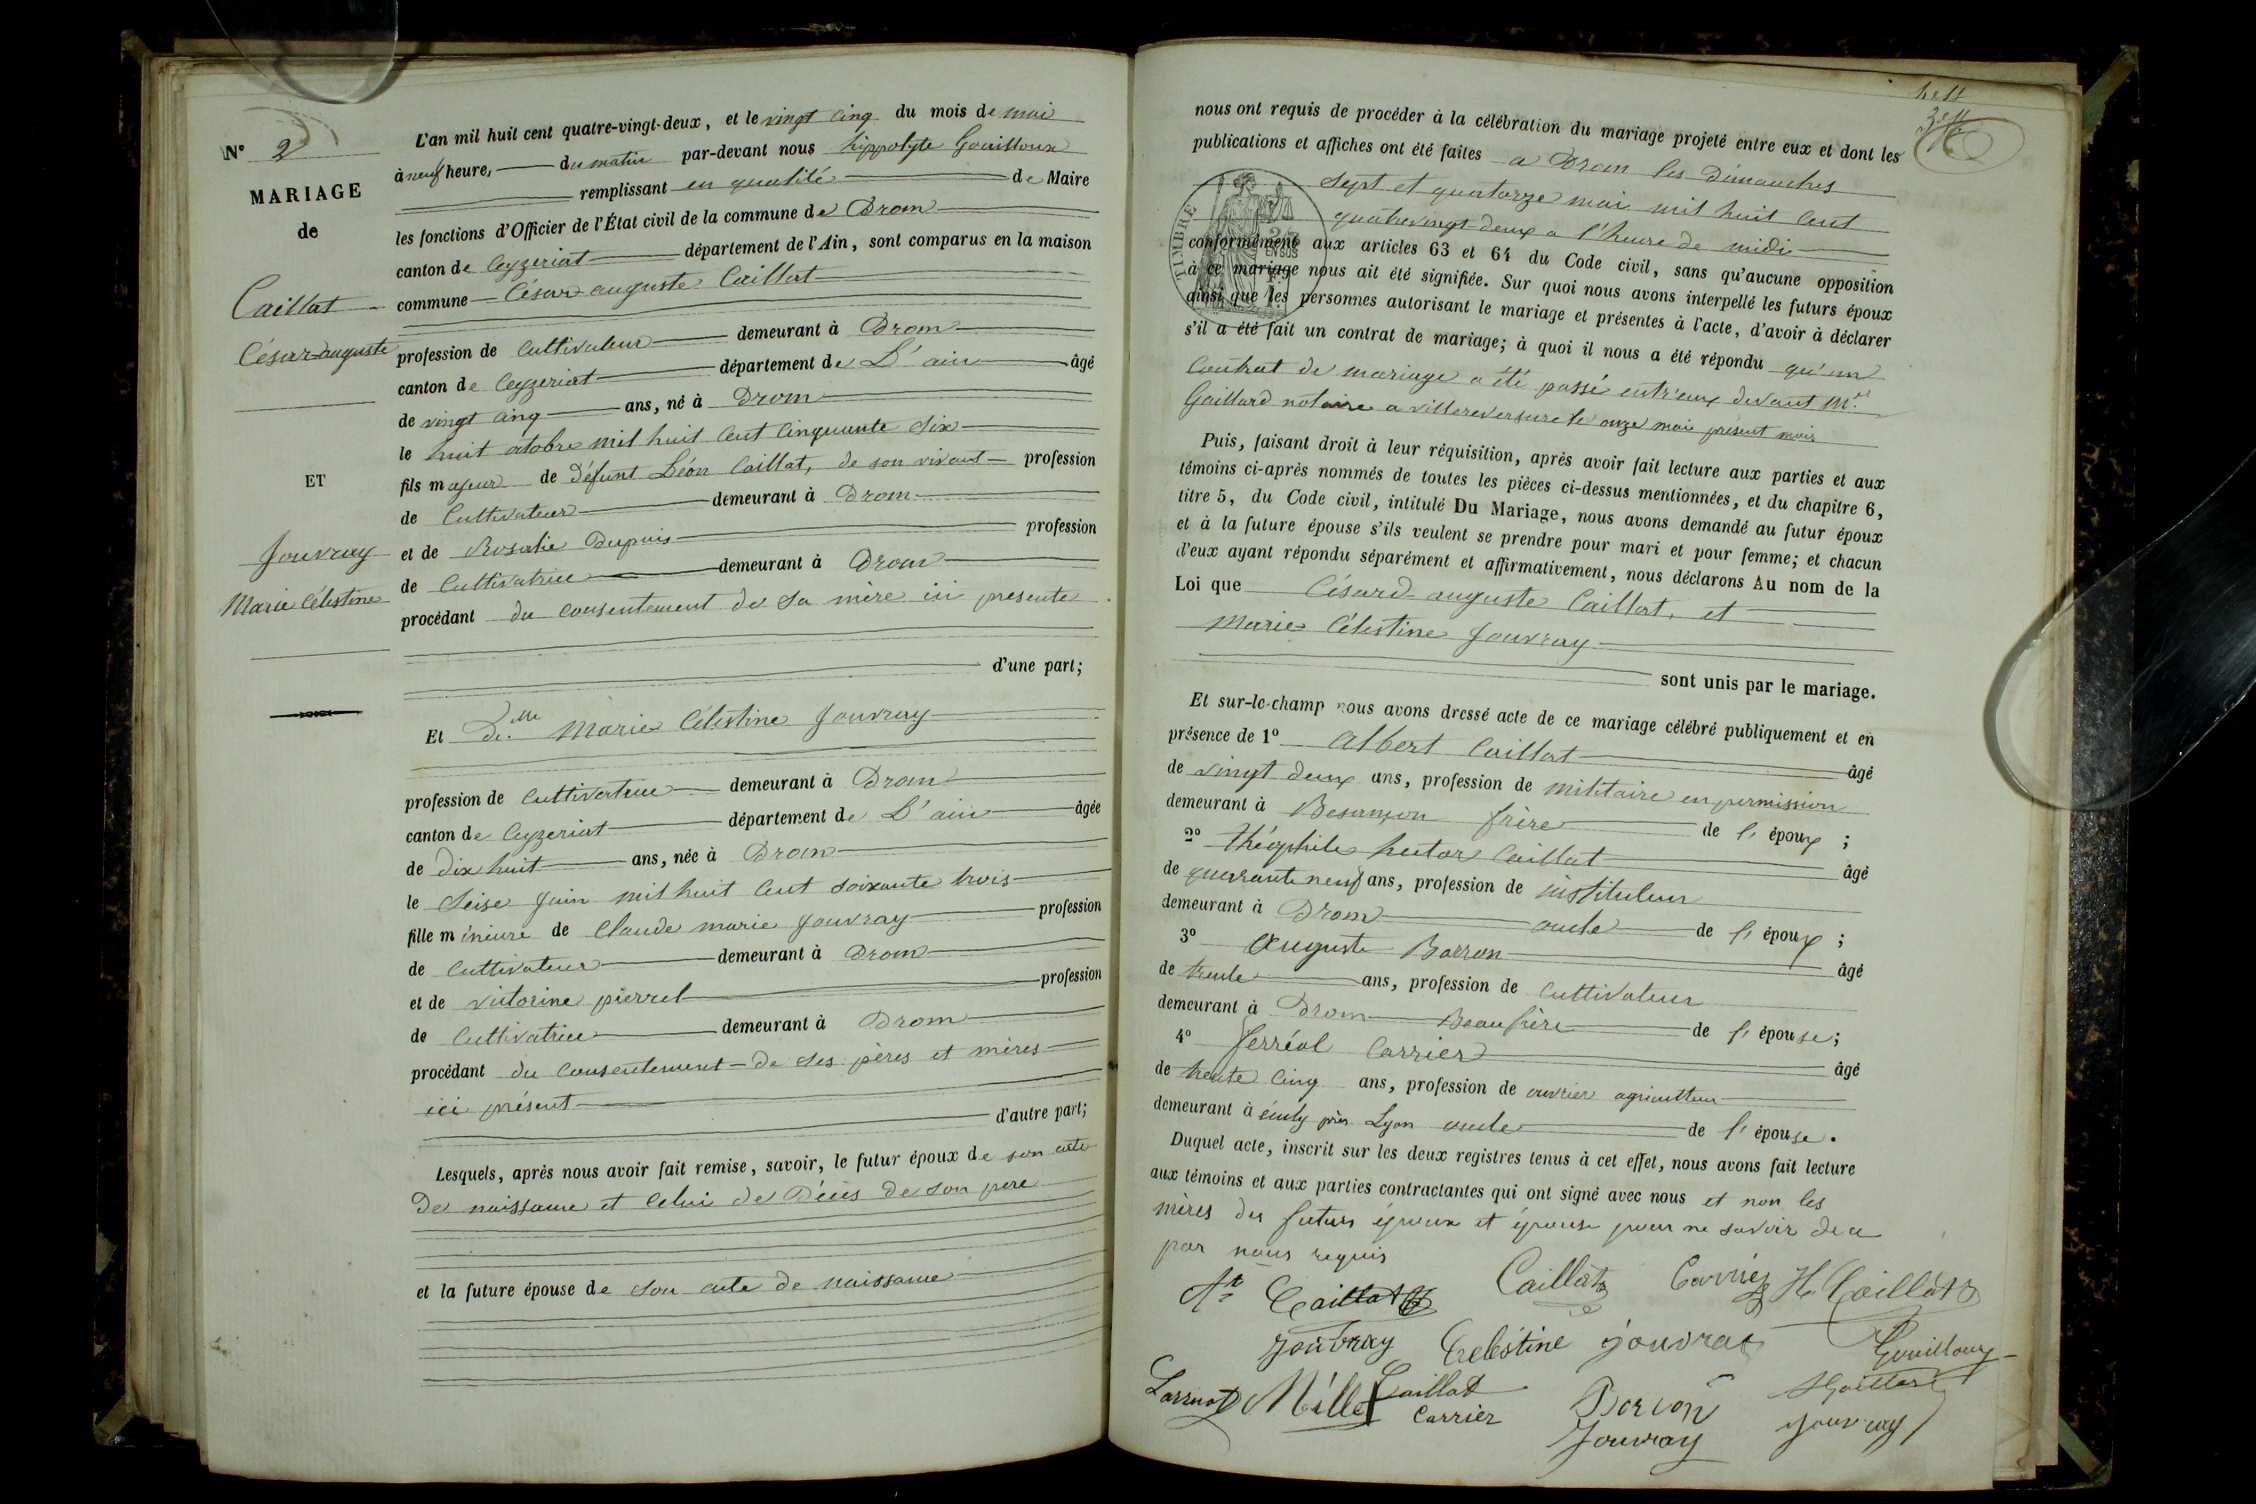 N° 2
MARIAGE
de
Caillat
César-auguste
ET
Jouvray
Marie Célestine
L'an mil huit cent quatre-vingt-deux, et le vingt cinq du mois de mai
à neuf heure, du matin par-devant nous hippolyte Gouilloux
remplissant en qualité de Maire
les fonctions d'Officier de l'État civil de la commune de Drom
canton de Ceyzeriat département de l'Ain, sont comparus en la maison
commune César auguste Caillat
profession de Cultivateur demeurant à Drom
canton de Ceyzeriat département de L'ain âgé
de vingt cinq ans, né à Drom
le huit octobre mil huit cent cinquante six
fils majeur de défunt Léon Caillat, de son vivant profession
de Cultivateur demeurant à Drom
et de Rosalie Dupuis profession
de Cultivatrice demeurant à Drom
procédant du consentement de sa mère ici presente
d'une part;
Et Delle Marie Célestine Jouvray
profession de Cultivatrice demeurant à Drom
canton de Ceyzeriat département de L'ain âgée
de dix huit ans, née à Drom
le Seise juin mil huit cent soixante trois
fille mineure de Claude marie Jouvray profession
de Cultivateur demeurant à Drom
et de victorine pierrel profession
de Cultivatrice demeurant à Drom
procédant du consentement de ses pères et mères
ici présent
d'autre part;
Lesquels, après nous avoir fait remise, savoir, le futur époux de son acte
de naissance et celui de Décès de son pere
et la future épouse de son acte de naissance
nous ont requis de procéder à la célébration du mariage projeté entre eux et dont les
publications et affiches ont été faites a Drom les dimanches
sept et quatorze mai mil huit cent
quatrevingt deux a l'heure de midi
TIMBRE
conformément aux articles 63 et 64 du Code civil, sans qu'aucune opposition
à ce mariage nous ait été signifiée. Sur quoi nous avons interpellé les futurs époux
ainsi que les personnes autorisant le mariage et présentes à l'acte, d'avoir à déclarer
s'il a été fait un contrat de mariage; à quoi il nous a été répondu qu'un
Contrat de mariage a été passé entr'eux devant Mre
Gaillard notaire a villereversure le onze mai present mois
Puis, faisant droit à leur réquisition, après avoir fait lecture aux parties et aux
témoins ci-après nommés de toutes les pièces ci-dessus mentionnées, et du chapitre 6,
titre 5, du Code civil, intitulé Du Mariage, nous avons demandé au futur époux
et à la future épouse s'ils veulent se prendre pour mari et pour femme; et chacun
d'eux ayant répondu séparément et affirmativement, nous déclarons Au nom de la
Loi que Césard auguste Caillat, et
Marie Célestine Jouvray
sont unis par le mariage.
Et sur-le-champ nous avons dressé acte de ce mariage célébré publiquement et en
présence de 1° Albert Caillat âgé
de vingt deux ans, profession de militaire en permission
demeurant à Besançon frère de l'époux;
2° théophile hector Caillat âgé
de quarante neuf ans, profession de instituteur
demeurant à Drom oncle de l'époux;
3° Auguste Borron âgé
de trente ans, profession de Cultivateur
demeurant à Drom Beaufrère de l'épouse;
4° ferréol Carrier âgé
de trente cinq ans, profession de ouvrier agriculteur
demeurant à écully près Lyon oncle de l'épouse.
Duquel acte, inscrit sur les deux registres tenus à cet effet, nous avons fait lecture
aux témoins et aux parties contractantes qui ont signé avec nous et non les
mères des futurs époux et épouse pour ne savoir de ce
par nous requis
Caillat Caillat H. Caillat
Jouvray Celéstine jouvray Gouilloux
Millet Caillat
Carrier
Jouvray Jouvray